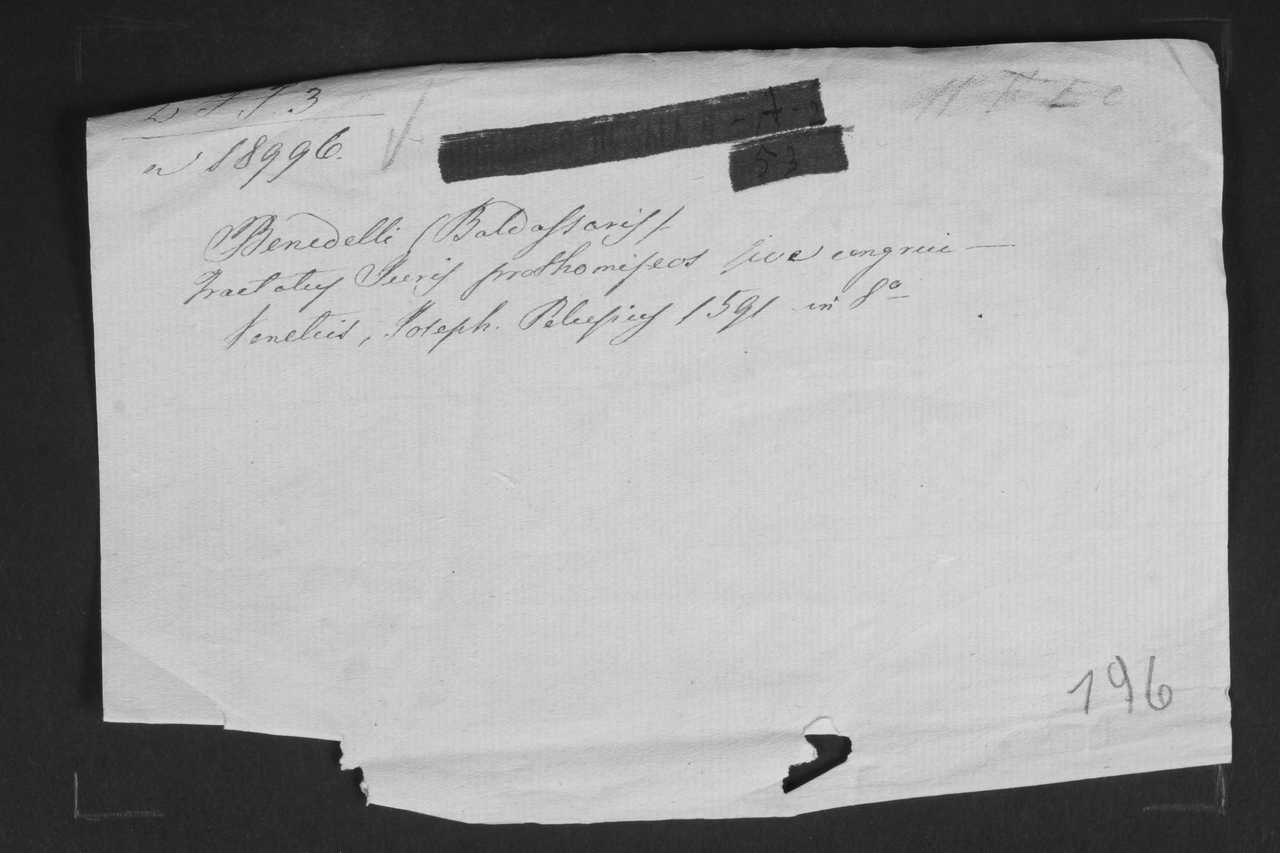 D. J. J. 3
n 18996.
53
Benedelli (Baldassaris).
Tractatus Juris prothomiseos sive congrui —
Venetiis, Joseph. Pelusius 1591 in 8º
196